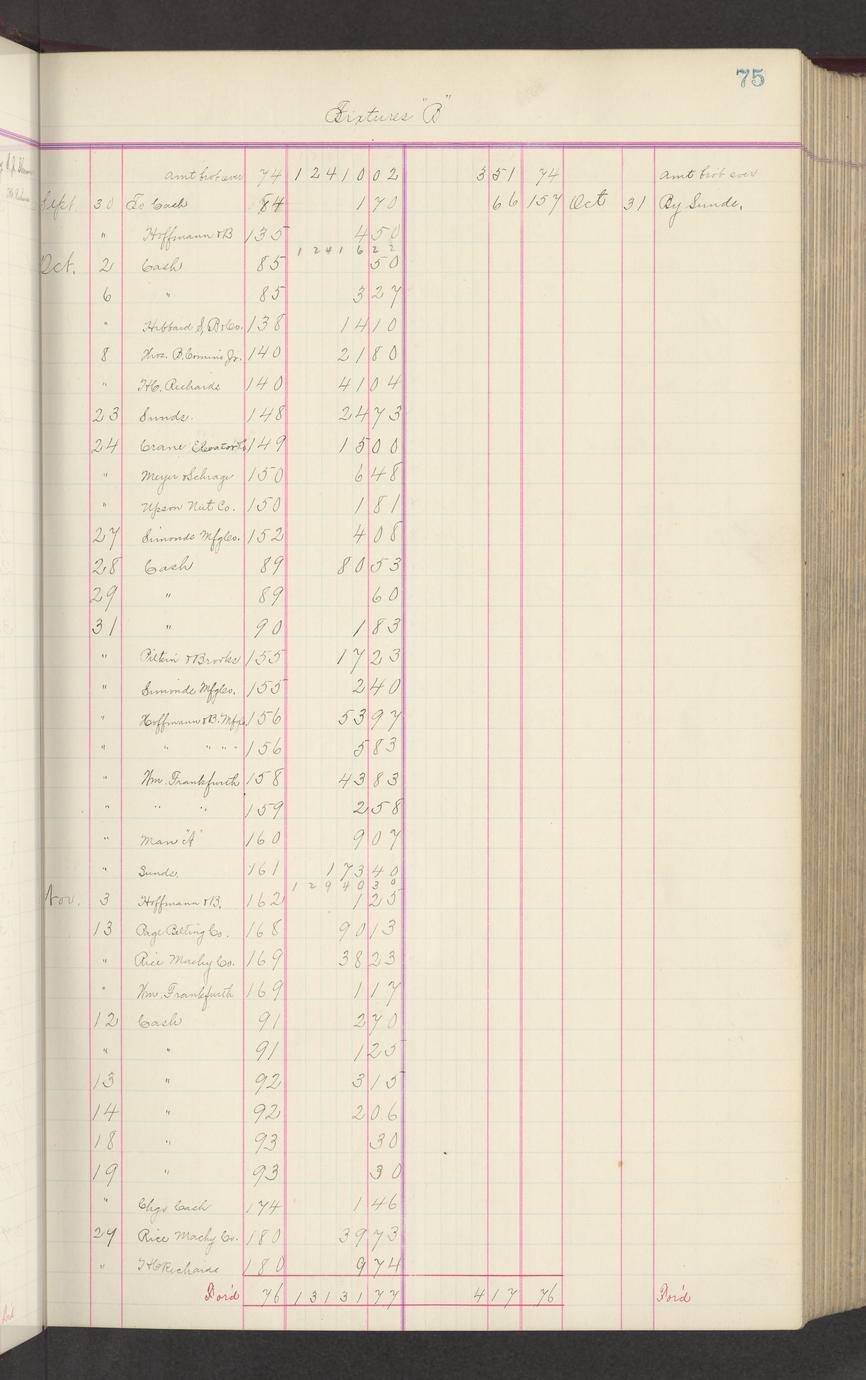 75
Fixtures "B"
amt brot over 74 12410 02 351 74 amt brot over
Sept. 30 To Cash 84 1 70 66 157 Oct 31 By Sunds.
" Hoffmann & B 135 4 50
12416 22
Oct. 2 Cash 85 50
6 " 85 3 27
" Hibbard S, B & Co. 138 14 10
8 Thos. B. Comins Jr. 140 21 80
" H.C. Richards 140 41 04
23 Sunds. 148 24 73
24 Crane Elevator Co 149 15 00
" Meyer & Schrage 150 6 48
" Upson Nut Co. 150 1 81
27 Simonds Mfg Co. 152 4 08
28 Cash 89 80 53
29 " 89 60
31 " 90 1 83
" Pitkin & Brooks 155 17 23
" Simonds Mfg Co. 155 2 40
" Hoffmann & B. Mfg Co. 156 53 97
" " " " " 156 5 83
" Wm. Frankfurth 158 43 83
" " " 159 2 58
" Man "A" 160 9 07
" Sunds. 161 173 40
12940 30
Nov. 3 Hoffmann & B. 162 1 25
13 Page Belting Co. 168 90 13
" Rice Machy Co. 169 38 23
" Wm. Frankfurth 169 1 17
12 Cash 91 2 70
" " 91 1 25
13 " 92 3 15
14 " 92 2 06
18 " 93 30
19 " 93 30
" Chgs Cash 174 1 46
24 Rice Machy Co. 180 39 73
" H C Richards 180 9 74
For'd 76 13131 77 417 76 For'd